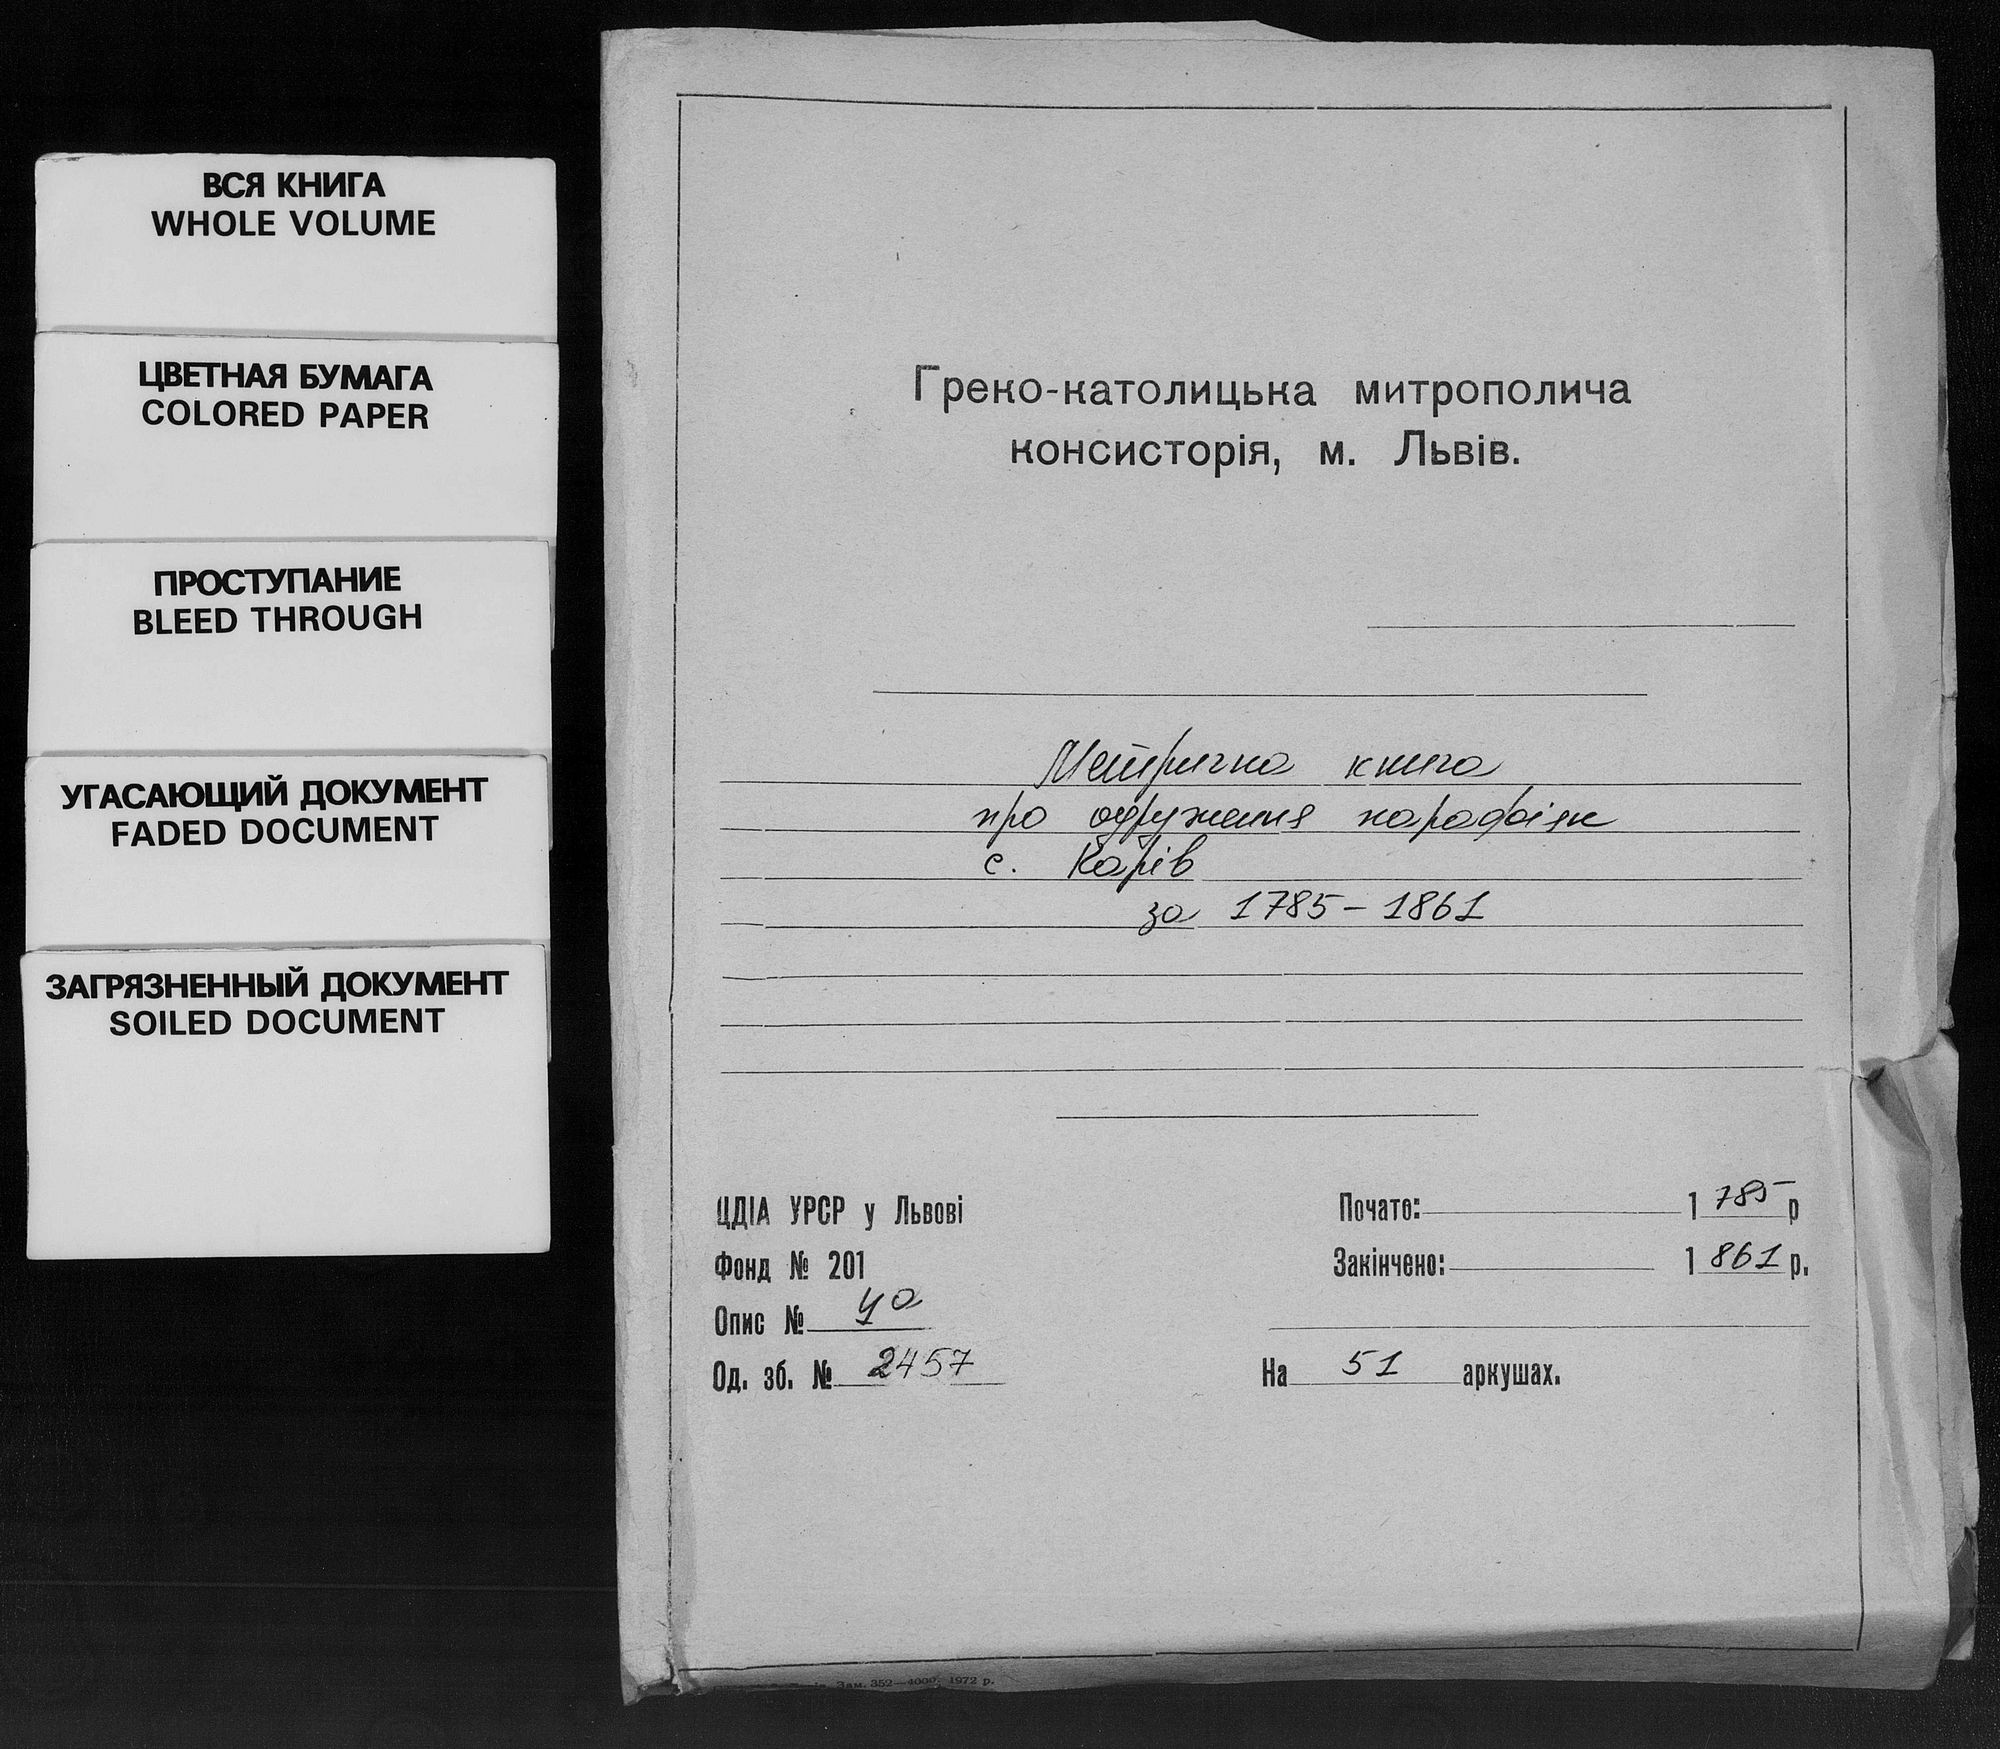 ВСЯ КНИГА
WHOLE VOLUME
ЦВЕТНАЯ БУМАГА
COLORED PAPER
ПРОСТУПАНИЕ
BLEED THROUGH
УГАСАЮЩИЙ ДОКУМЕНТ
FADED DOCUMENT
ЗАГРЯЗНЕННЫЙ ДОКУМЕНТ
SOILED DOCUMENT
Греко-католицька митрополича
консисторія, м. Львів.
Метрична книга
про одруження парафіян
с. Карів
за 1785-1861
ЦДІА УРСР у Львові
Фонд № 201
Опис № 4а
Од. зб. № 2457
Почате: 1785 р
Закінчено: 1861 р.
На 51 аркушах.
Зам. 352—4000. 1972 р.